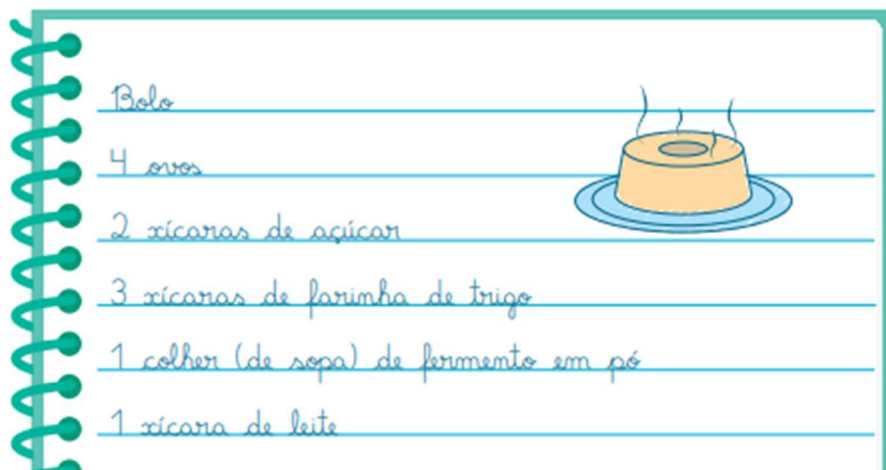 Bolo
4 ovos
2 xícaras de açúcar
3 xícaras de farinha de trigo
1 colher (de sopa) de fermento em pó
1 xícara de leite